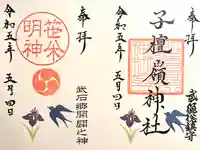 奉拝
子檀嶺神社
武石総鎮守
令和五年五月四日
奉拝
笹焼明神
武石郷開闢之神
令和五年五月四日